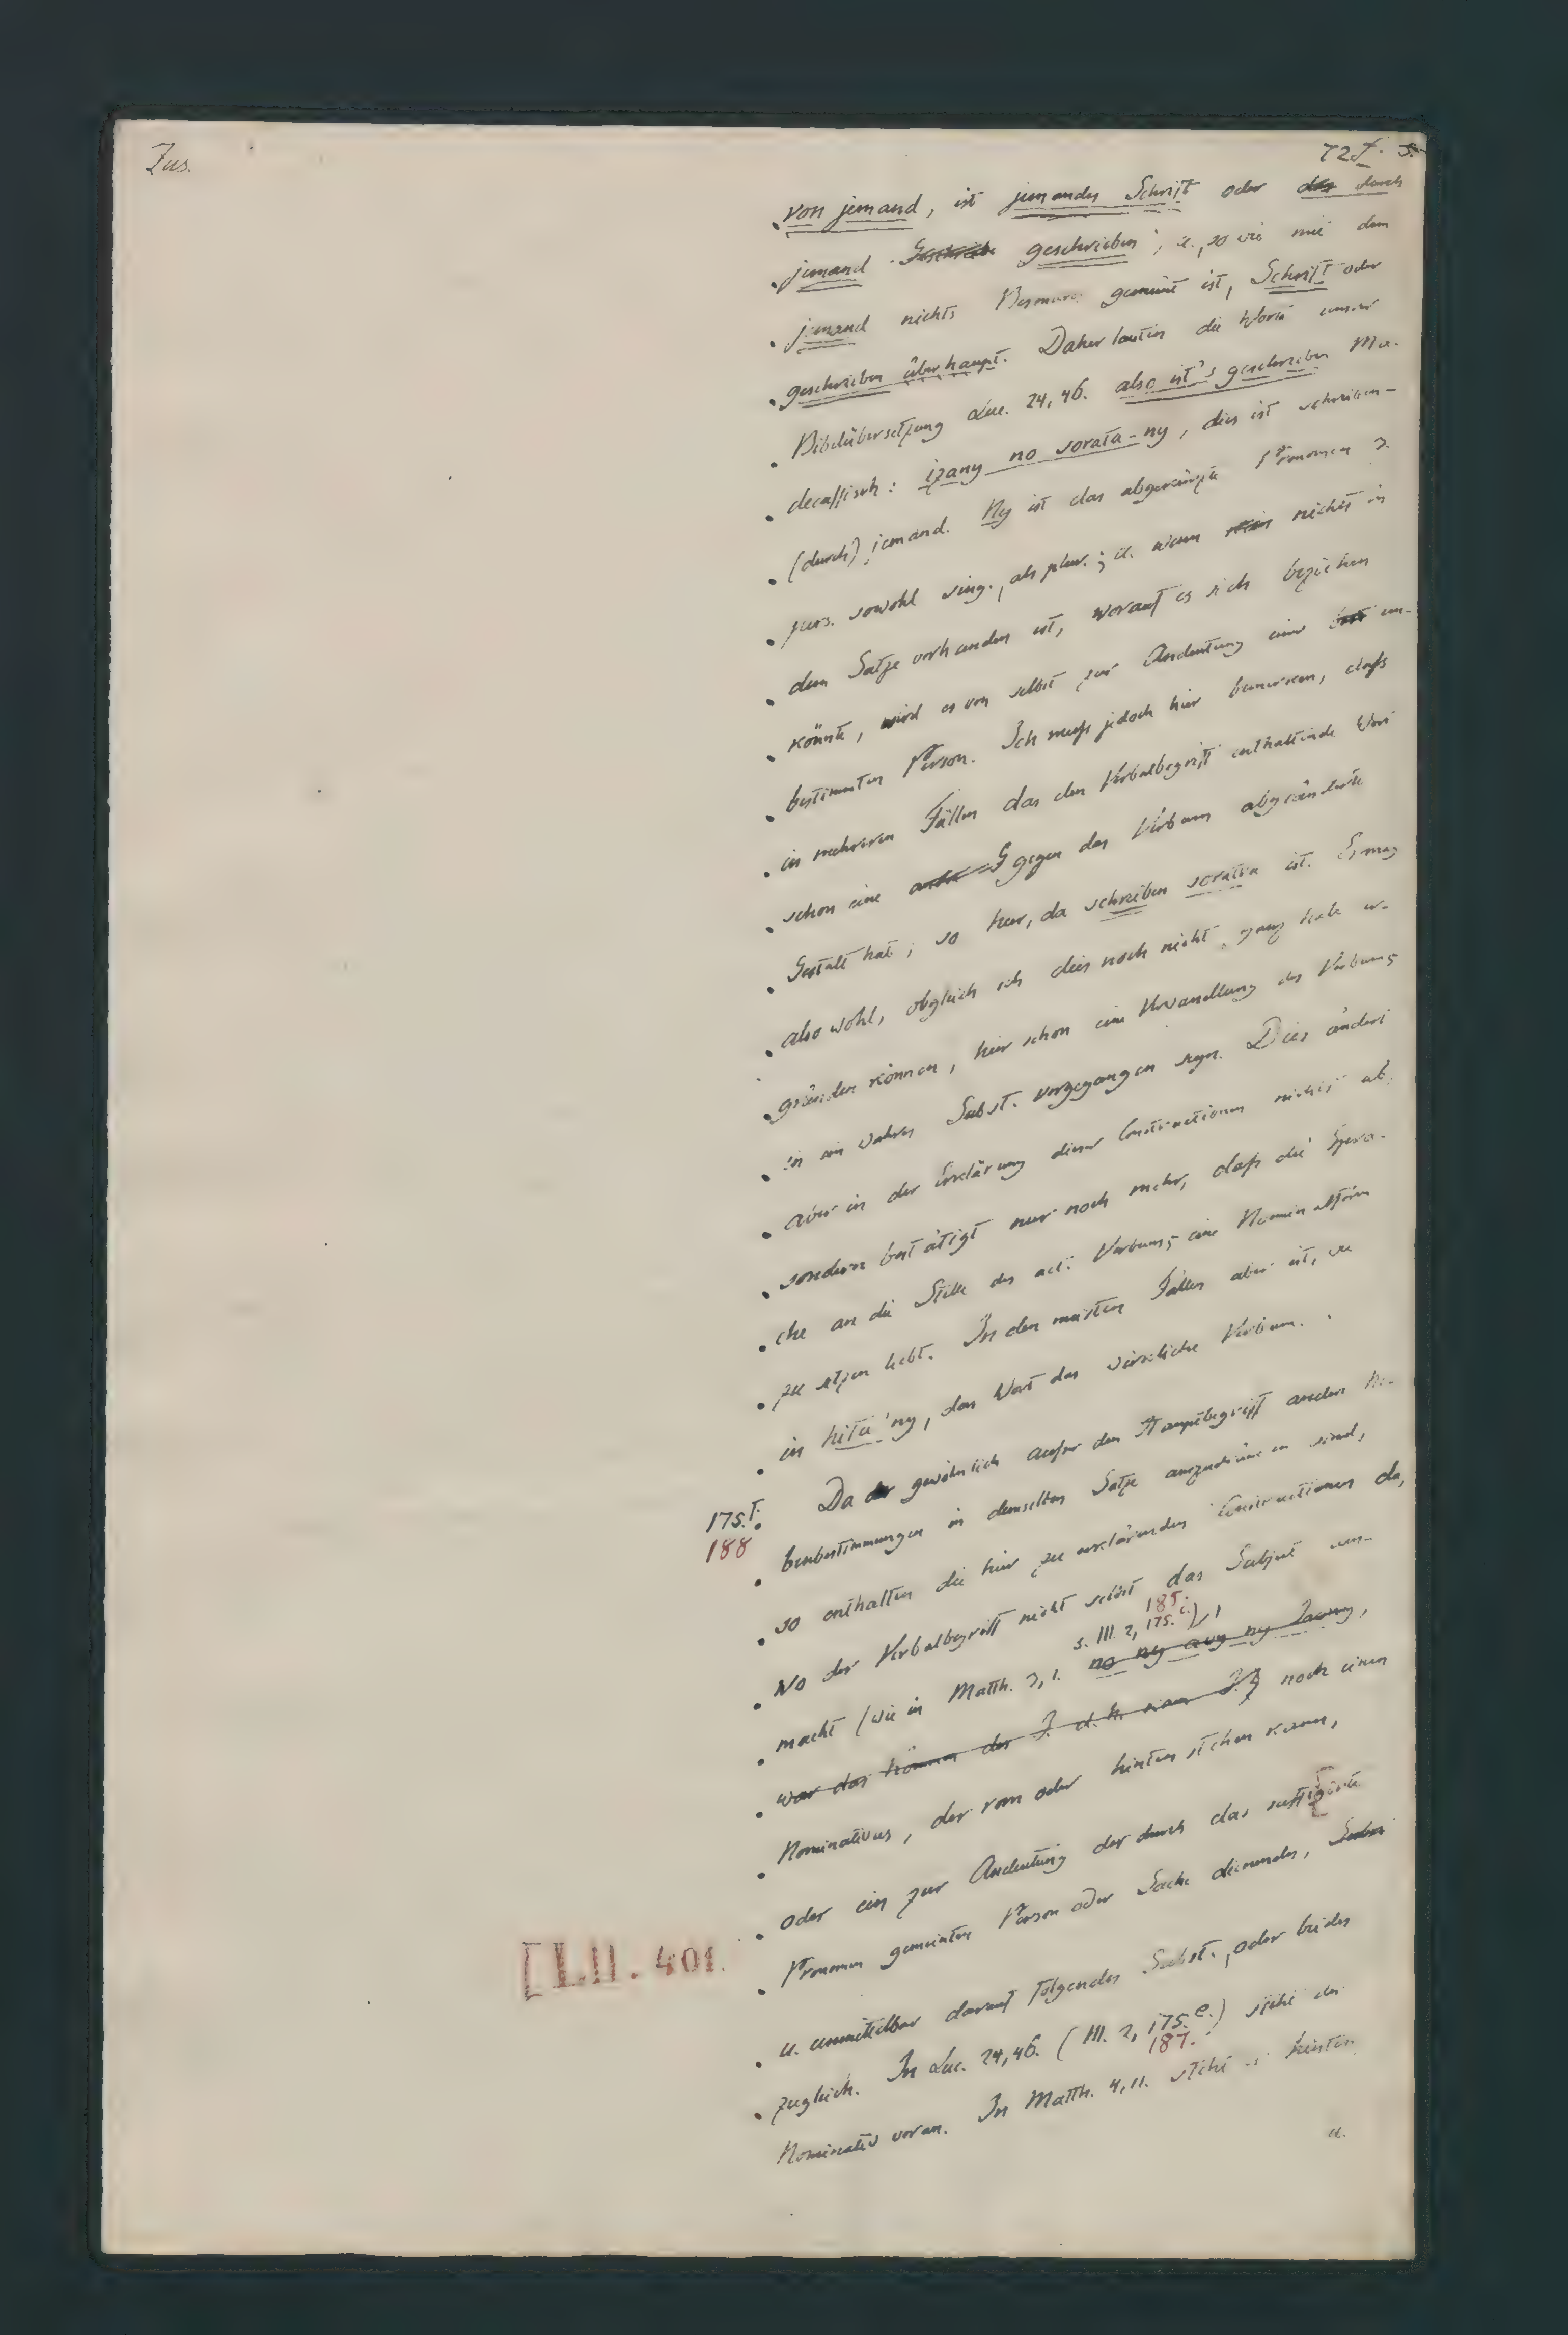 Zus.
72f. 5.
von jemand, ist jemandes Schrift oder des durch
jemand Geschriebe geschrieben; u., so wie mit dem
jemand nichts Besonderes gemeint ist, Schrift oder
geschrieben überhaupt. Daher lauten die Worte unsrer
Bibelübersetzung Luc. 24, 46. also ist's geschrieben Ma-
decassisch: izany no sorata-ny, dies ist schreiben-
(durch) jemand. Ny ist das abgekürzte Pronomen 3.
pers. sowohl sing., als plur.; u. wenn nichts in
dem Satze vorhanden ist, worauf es sich beziehen
könnte, wird es von selbst zur Andeutung einer un-
bestimmten Person. Ich muß jedoch hier bemerken, daß
in mehreren Fällen das den Verbalbegriff enthaltende Wort
schon eine gegen das Verbum abgeänderte
Gestalt hat; so hier, da schreiben soratra ist. Es mag
also wohl, obgleich ich dies noch nicht ganz habe er-
gründen können, hier schon eine Verwandlung des Verbums
in ein wahres Subst. vorgegangen seyn. Dies ändert
aber in der Erklärung dieser Constructionen nichts ab,
sondern bestätigt nur noch mehr, daß die Spra-
che an die Stelle des act. Verbums eine Nominalform
zu setzen liebt. In den meisten Fällen aber ist, wie
in hita'ny, das Wort das wirkliche Verbum.
175.f.
188
Da gewöhnlich außer dem Hauptbegriff andere Ne-
benbestimmungen in demselben Satze auszudrücken sind,
so enthalten die hier zu erklärenden Constructionen da,
wo der Verbalbegriff nicht selbst das Subject aus-
185.
s. III. 2, 175. c.),
macht (wie in Matth. 3, 1. no ny avy ny Jaony,
war das kommen des J. d. h. kam J.) noch einen
Nominativus, der vorn oder hinten stehen kann,
oder ein zur Andeutung der durch das suffigirte
Pronomen gemeinten Person oder Sache dienendes, Subs
u. unmittelbar darauf folgendes Subst., oder beides
[LII. 401.
zugleich. In Luc. 24, 46. (III. 2, 175. e.) steht der
187.
Nominativ voran. In Matth. 4, 11. steht er hinten
u.